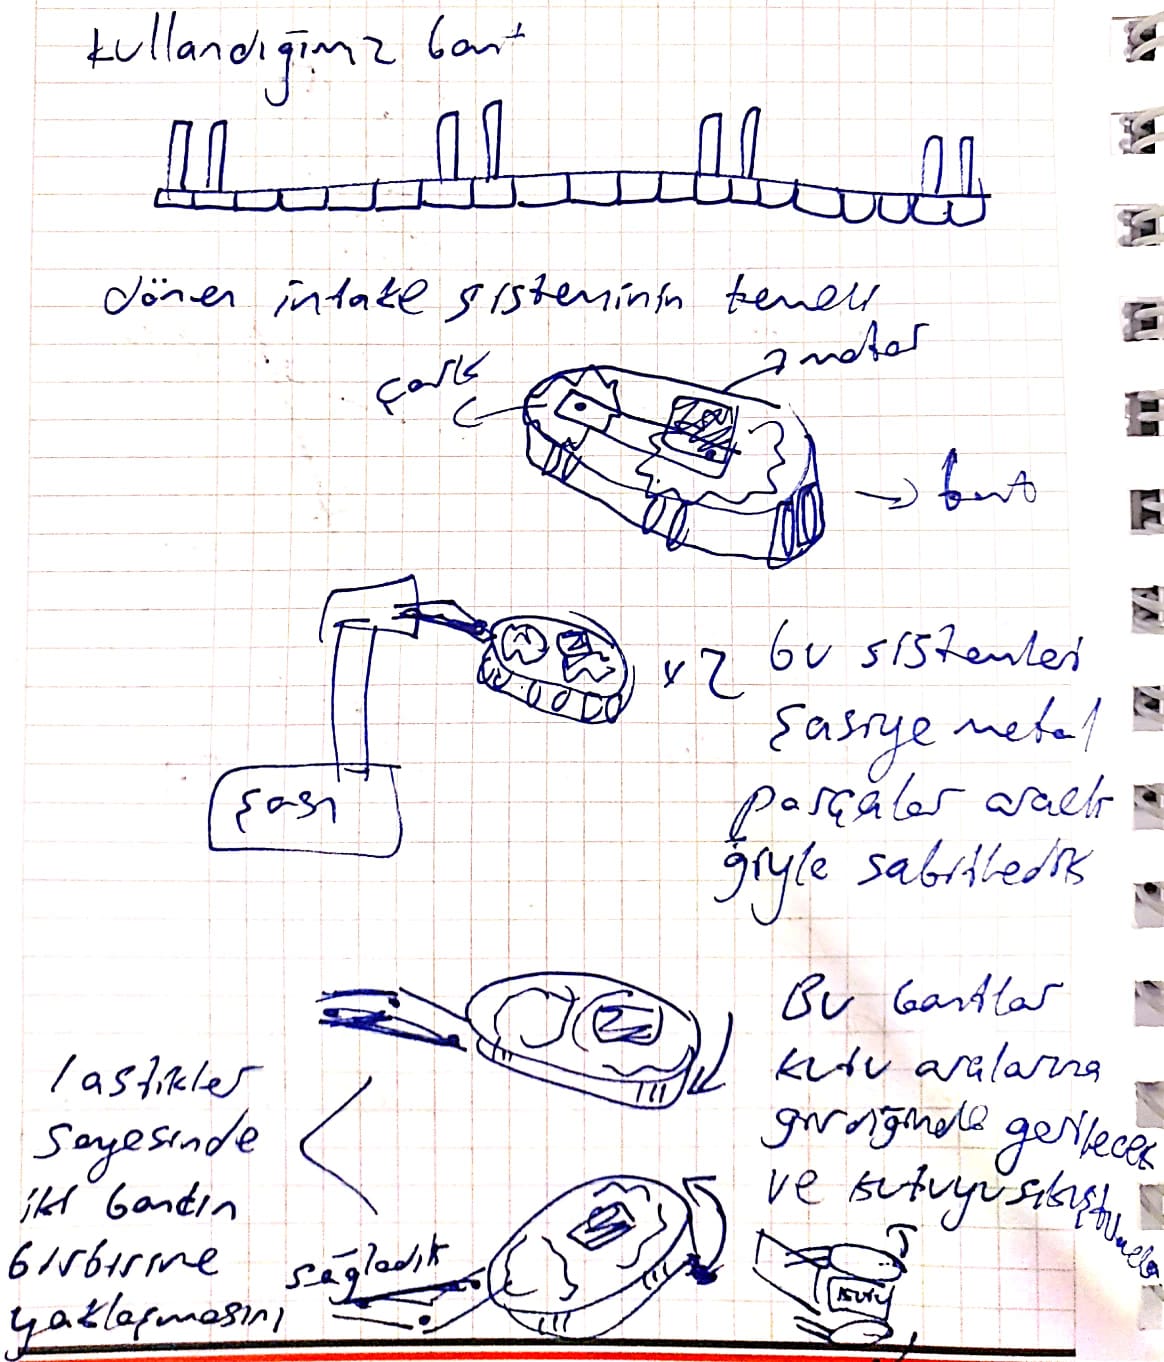 kullandığımız bant
döner intake sisteminin temeli
motor
çark
bant
x2
bu sistemleri
şasiye metal
parçalar aracılı
ğıyla sabitledik
şasi
Bu bantlar
kutu aralarına
girdiğinde gerilecek
ve kutuyu sıkıştırmakta
lastikler
sayesinde
iki bandın
birbirine
yaklaşmasını
sağladık
kutu